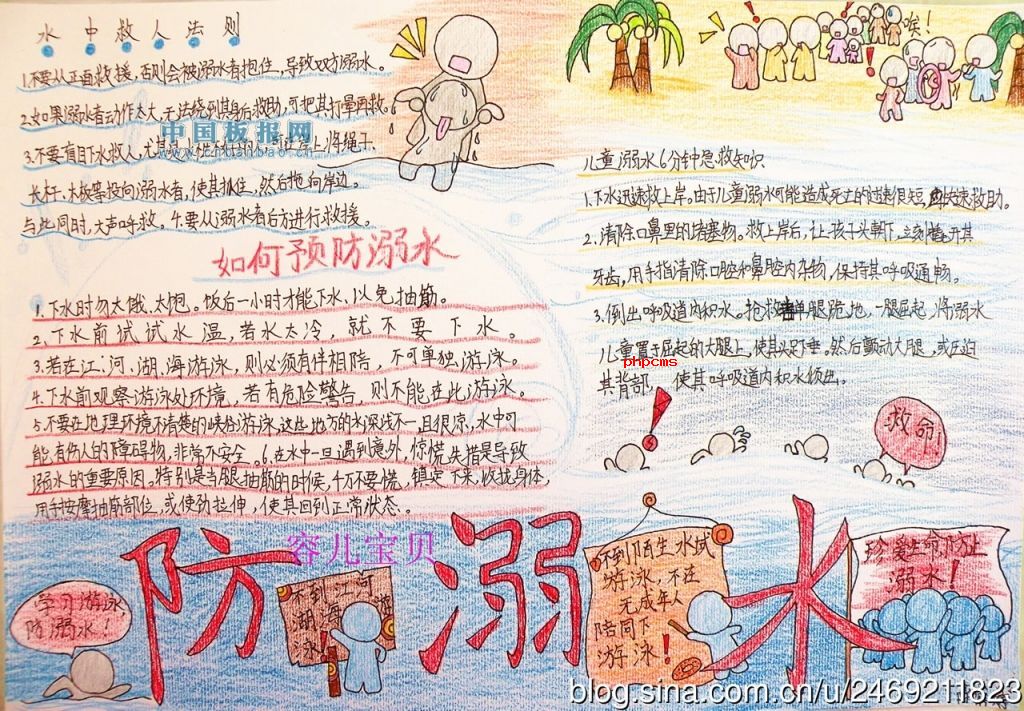 水中救人法则
1.不要从正面救援，否则会被溺水者抱住，导致双方溺水。
2.如果溺水者动作太大，无法绕到其身后救助，可把其打晕再救。
中国板报网
3.不要盲目下水救人，尤其是
将绳子、
长杆、木板等投向溺水者，使其抓住，然后拖向岸边。
与此同时，大声呼救。4.要从溺水者后方进行救援。
如何预防溺水
1.下水时勿太饿、太饱。饭后一小时才能下水，以免抽筋。
2.下水前试试水温，若水太冷，就不要下水。
3.若在江、河、湖、海游泳，则必须有伴相陪，不可单独游泳。
4.下水前观察游泳处环境，若有危险警告，则不能在此游泳。
5.不要在地理环境不清楚的峡谷游泳，这些地方的水深浅不一，且很凉，水中可
能有伤人的障碍物，非常不安全。6.在水中一旦遇到意外，惊慌失措是导致
溺水的重要原因。特别是当腿抽筋的时候，千万不要慌，镇定下来，收拢身体，
用手按摩抽筋部位，或使劲拉伸，使其回到正常状态。
唉！
儿童溺水6分钟急救知识
1.下水迅速救上岸。由于儿童溺水可能造成死亡的过速很短，快速救助。
2.清除口鼻里的堵塞物。救上岸后，让孩子头朝下，立刻撬开其
牙齿，用手指清除口腔和鼻腔内杂物，保持其呼吸通畅。
3.倒出呼吸道内积水。抢救者单腿跪地，一腿屈起，将溺水
儿童置于屈起的大腿上，使其头足下垂。然后颤动大腿，或压迫
phpcms
其背部，使其呼吸道内积水倾出。
救命！
防溺水
容儿宝贝
学习游泳
防溺水！
不到江河
湖海游
泳！
不到陌生水域
游泳，不在
无成年人
陪同下
游泳！
珍爱生命，防止
溺水！
blog.sina.com.cn/u/2469211823